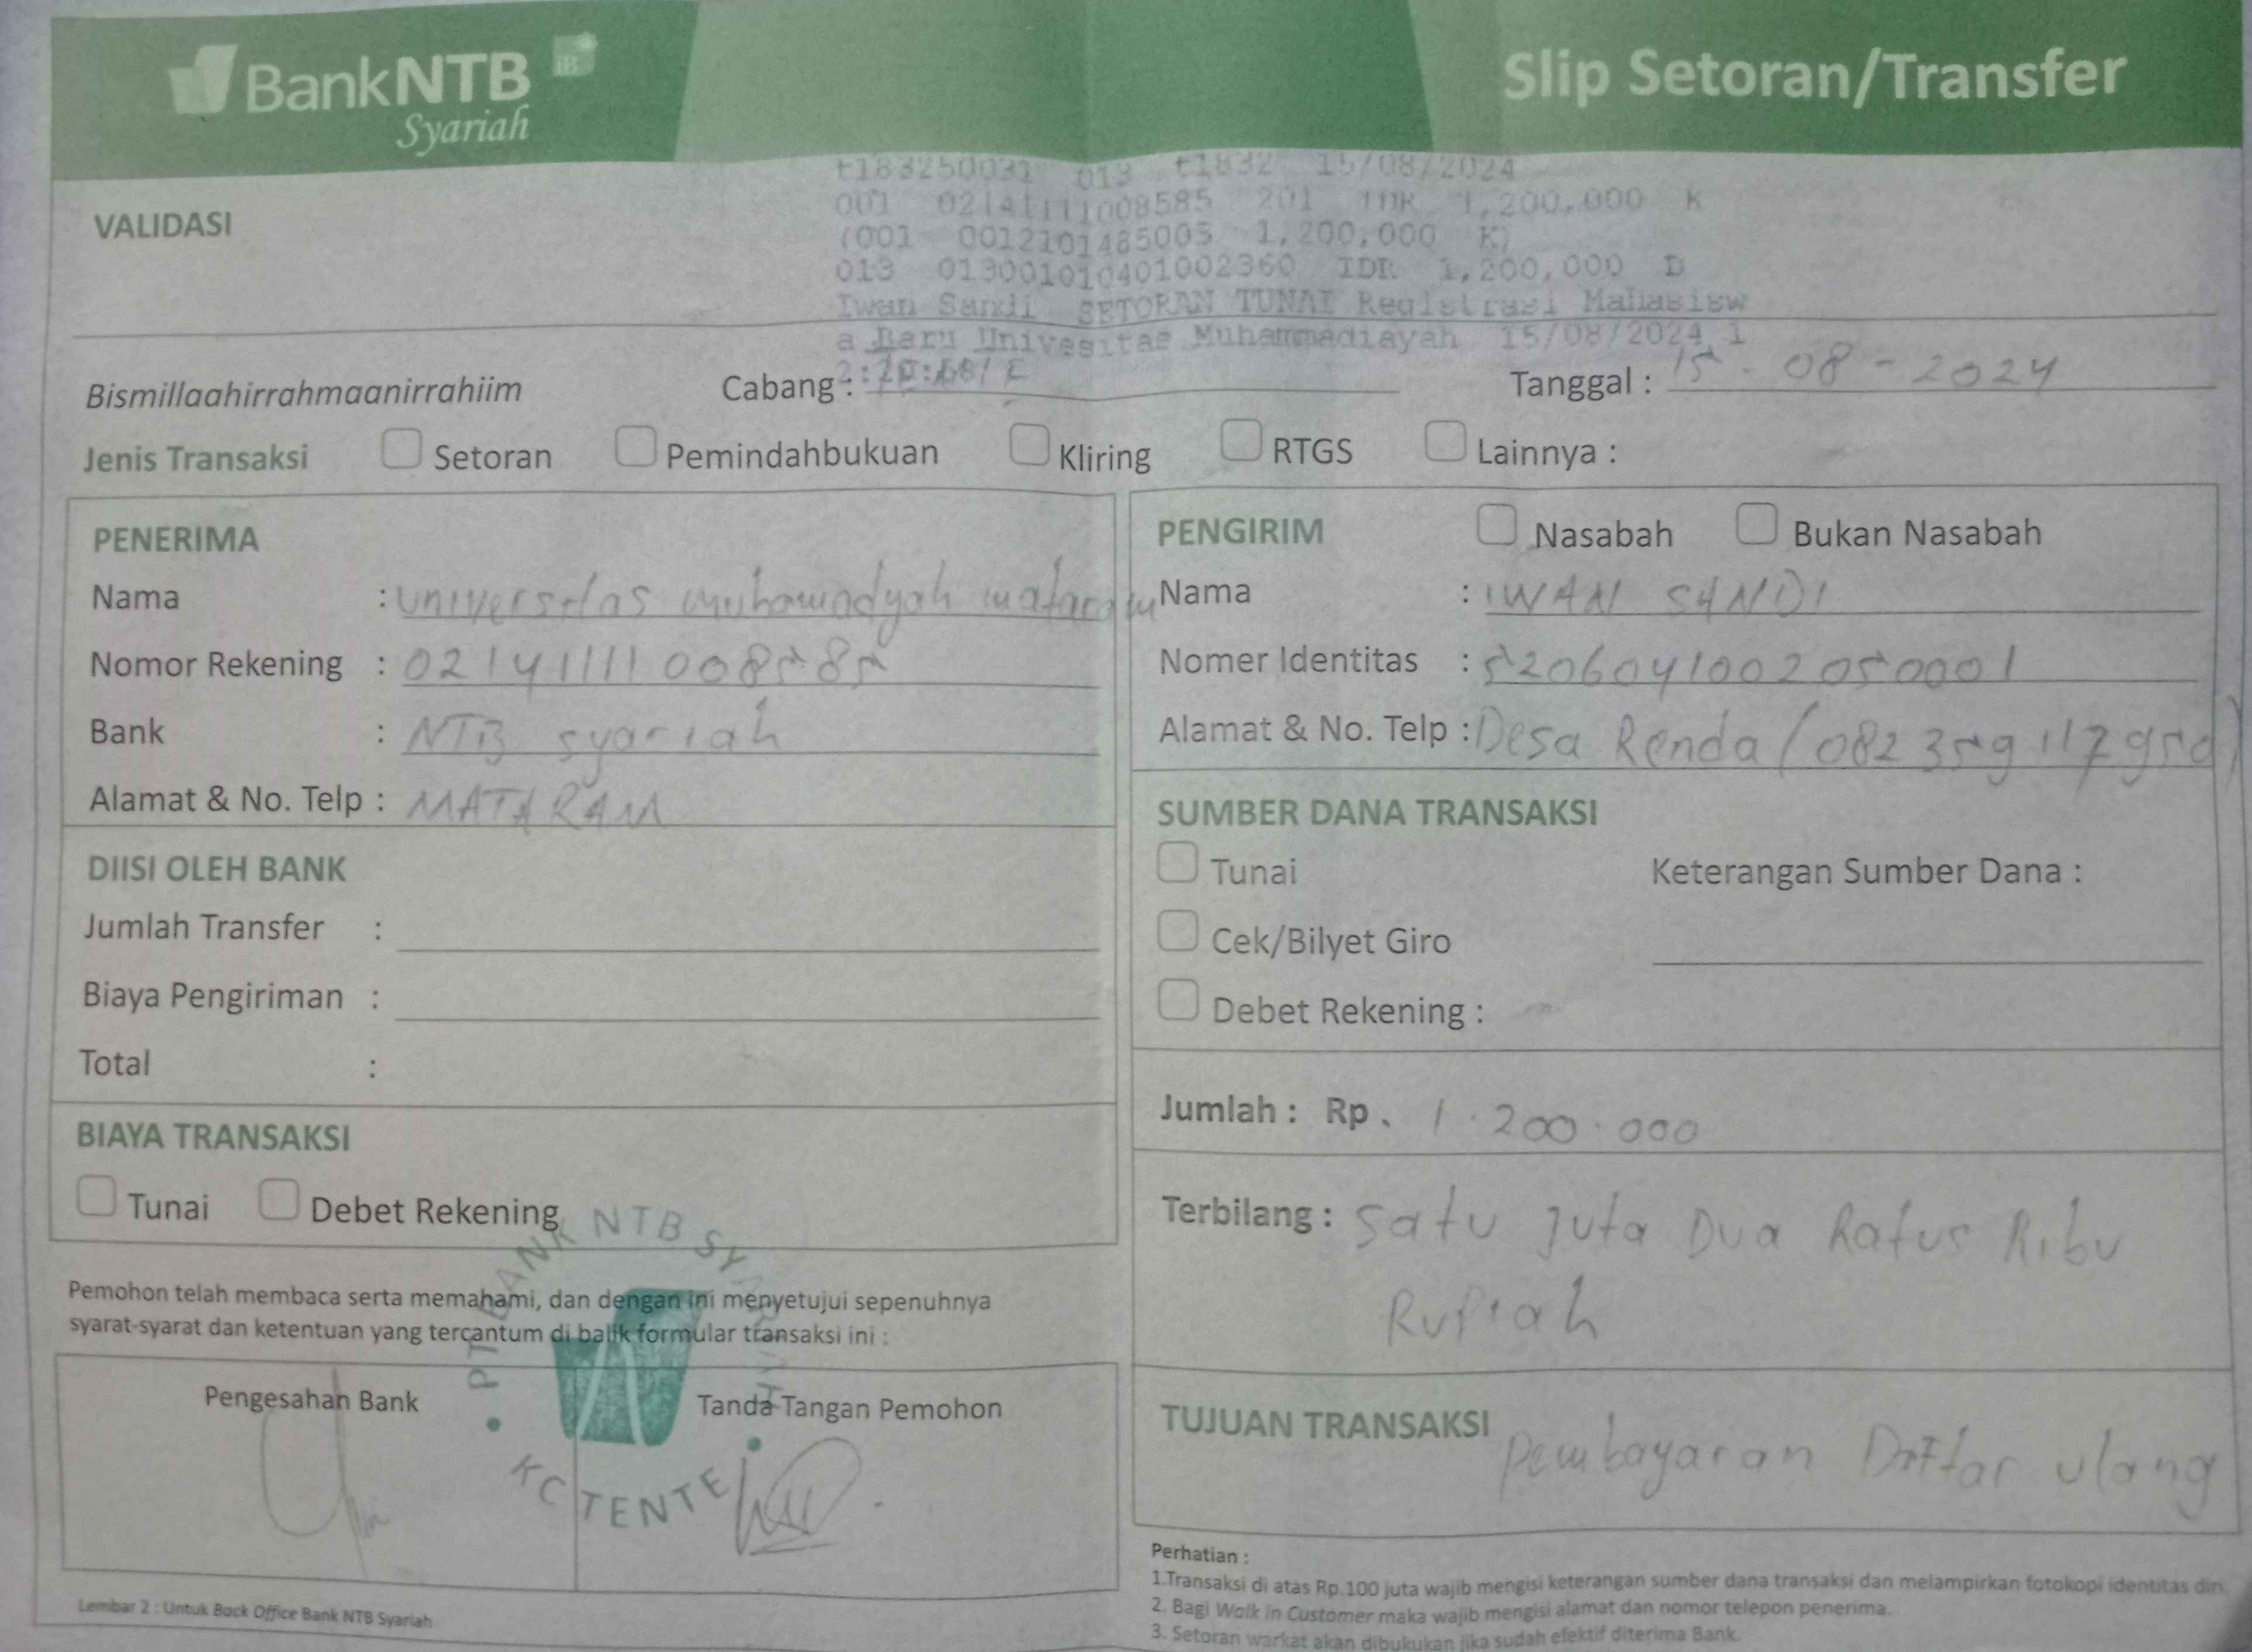 BankNTB iB
Syariah
Slip Setoran/Transfer
t183250031 013 t1832 15/08/2024
001 02141111008585 201 IDR 1,200,000 K
VALIDASI
(001 0012101485005 1,200,000 K)
013 013001010401002360 IDR 1,200,000 D
Iwan Sandi SETORAN TUNAI Registrasi Mahasisw
a Baru Univesitas Muhammadiayah 15/08/2024 1
Bismillaahirrahmaanirrahiim Cabang : Tanggal : 15 - 08 - 2024
Jenis Transaksi Setoran Pemindahbukuan Kliring RTGS Lainnya :
PENERIMA
Nama : Universitas muhamadyah mataram
Nomor Rekening : 02141111008585
Bank : NTB syariah
Alamat & No. Telp : MATARAM
PENGIRIM Nasabah Bukan Nasabah
Nama : IWAN SANDI
Nomer Identitas : 5206041002050001
Alamat & No. Telp : Desa Renda (
DIISI OLEH BANK
Jumlah Transfer :
Biaya Pengiriman :
Total :
SUMBER DANA TRANSAKSI
Tunai Keterangan Sumber Dana :
Cek/Bilyet Giro
Debet Rekening :
BIAYA TRANSAKSI
Tunai Debet Rekening
Jumlah : Rp. 1.200.000
Terbilang : Satu Juta Dua Ratus Ribu
Rupiah
Pemohon telah membaca serta memahami, dan dengan ini menyetujui sepenuhnya
syarat-syarat dan ketentuan yang tercantum di balik formular transaksi ini :
Pengesahan Bank Tanda Tangan Pemohon
PT BANK NTB SYARIAH
KC TENTE
TUJUAN TRANSAKSI Pembayaran Daftar ulang
Lembar 2 : Untuk Back Office Bank NTB Syariah
Perhatian :
1.Transaksi di atas Rp.100 juta wajib mengisi keterangan sumber dana transaksi dan melampirkan fotokopi identitas diri.
2. Bagi Walk in Customer maka wajib mengisi alamat dan nomor telepon penerima.
3. Setoran warkat akan dibukukan jika sudah efektif diterima Bank.